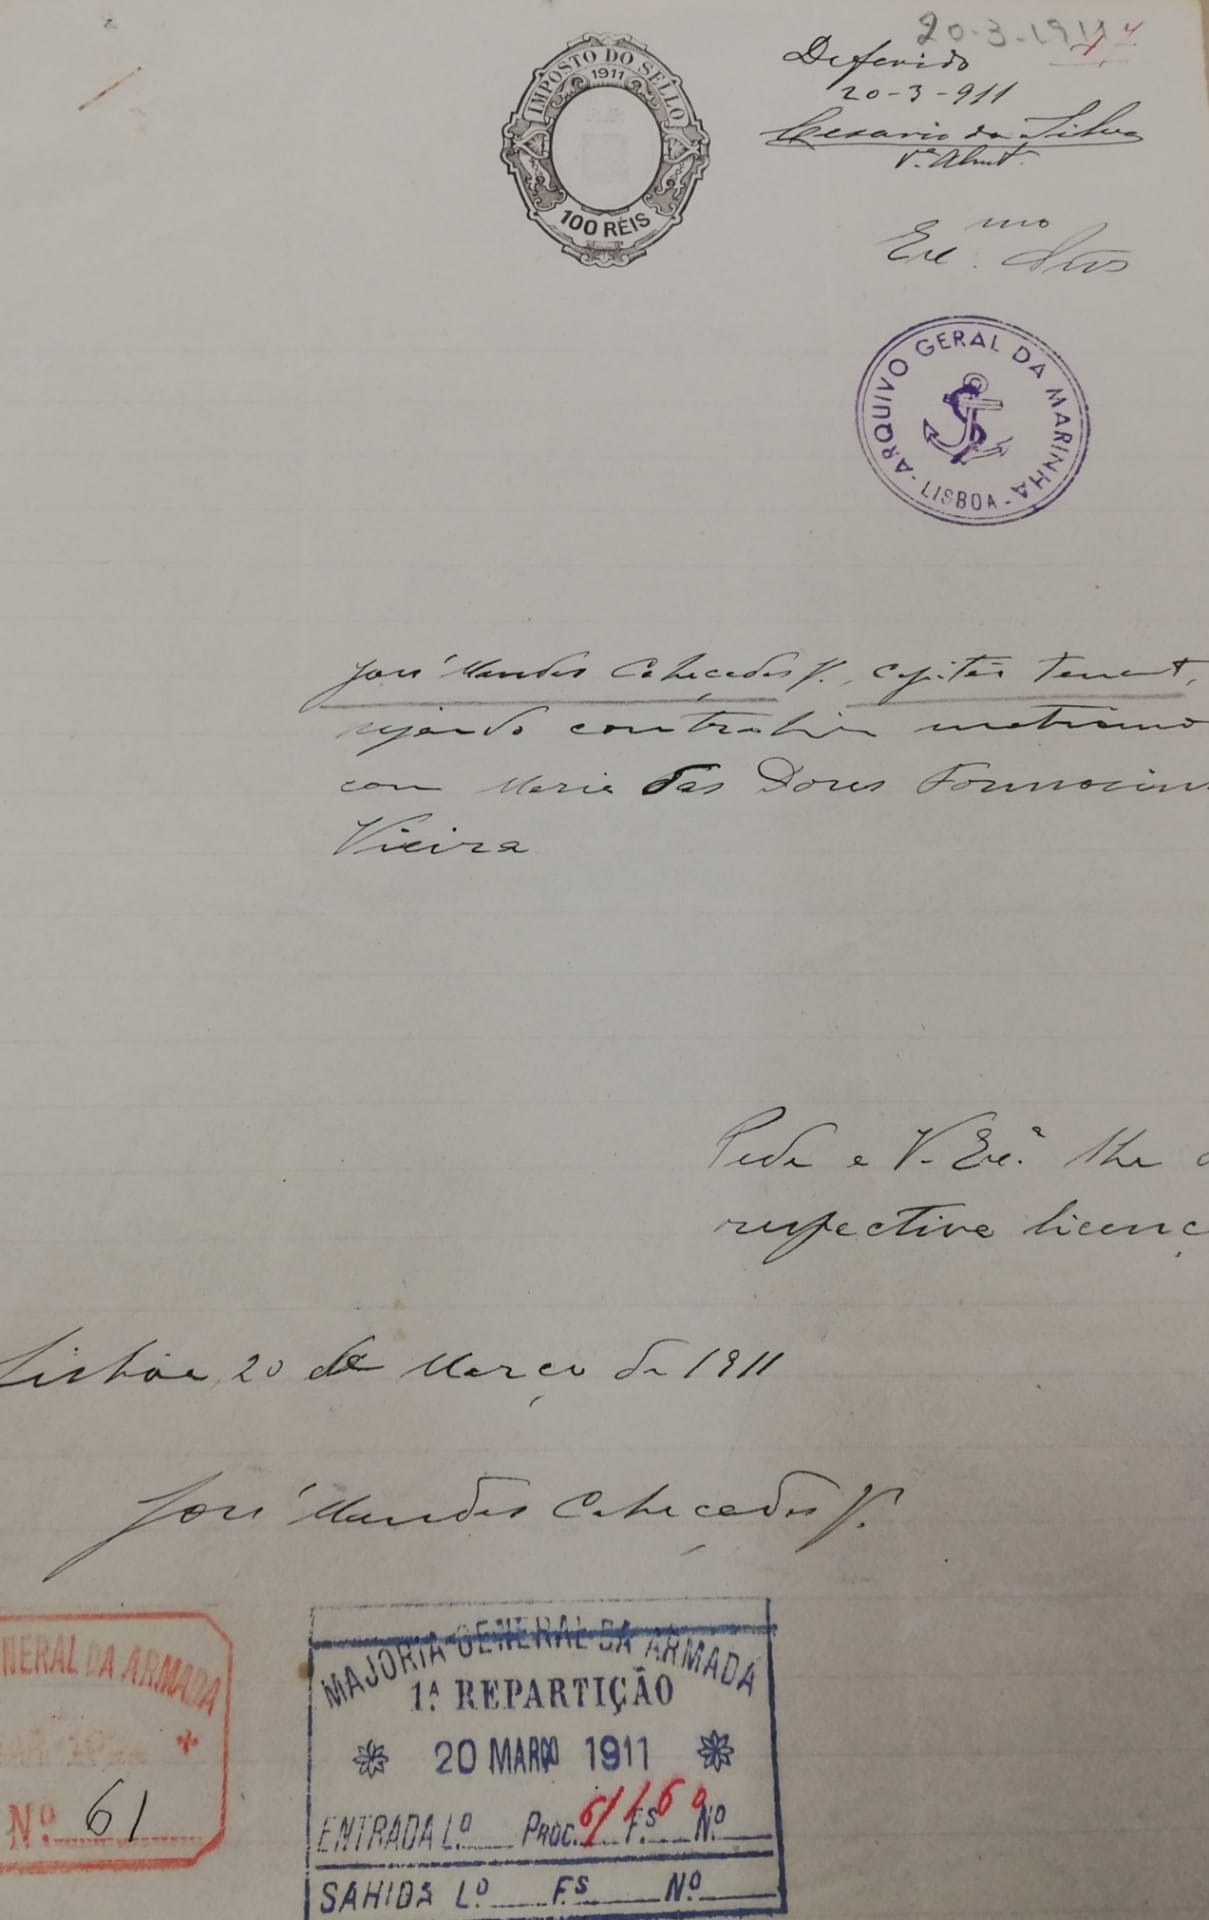 20-3-1911
4
Deferido
20-3-911
Cesario da Silva
V. Almt.
IMPOSTO DO SELLO
1911
100 RÉIS
Exc.mo Snr
ARQUIVO GERAL DA MARINHA
- LISBOA -
José Mendes Cabeçadas Jr., capitão tenent,
sejando contrahir matrimo
com Maria das Dores Formosin
Vieira
Pede a V. Exc.ª lhe
respectiva licenç
Lisboa, 20 de Março de 1911
José Mendes Cabeçadas Jr.
NERAL DA ARMADA
Nº 61
MAJORIA GENERAL DA ARMADA
1.ª REPARTIÇÃO
20 MARÇO 1911
ENTRADA Lº PROC. 61 Fs 160 Nº
SAHIDA Lº Fs Nº